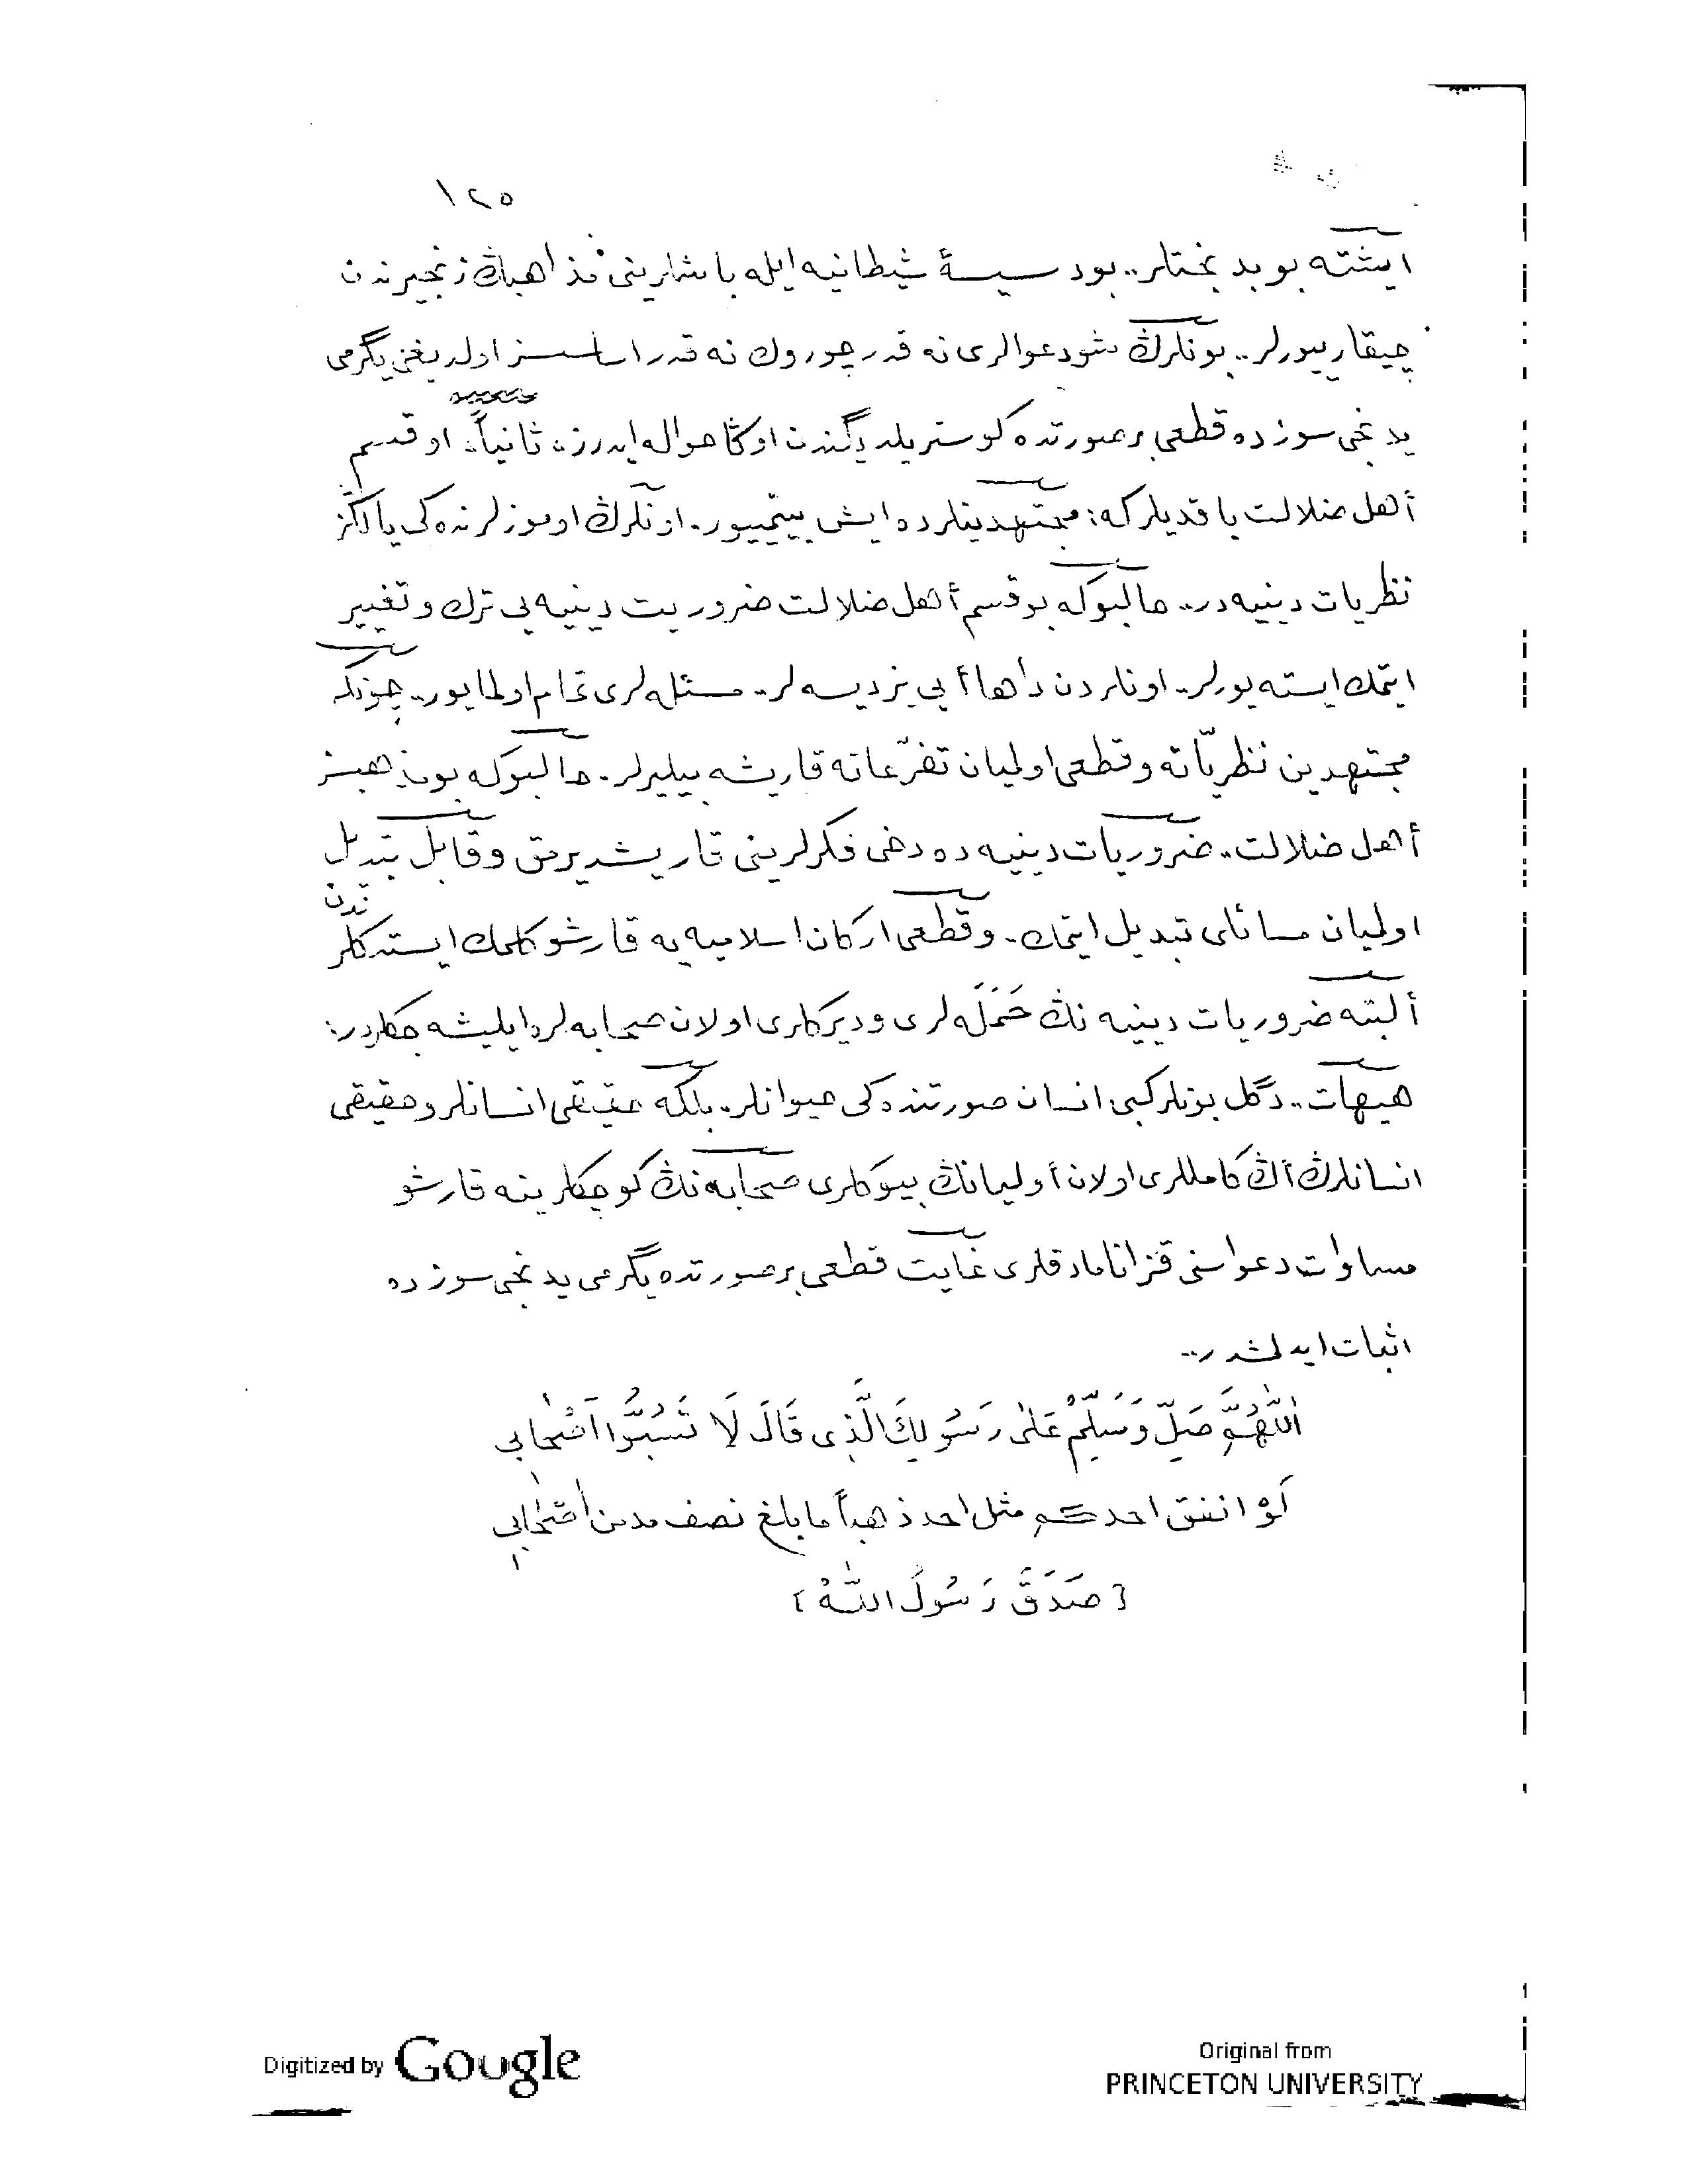 ١٢٥
ایشته بو بدبختلر.. بو دسیسۀ شیطانیه ایله باشلرینی مذاهبڭ زنجیرندن
چیقارییورلر.. بونلرڭ شو دعوالری نه قدر چوروك نه قدر اساسسز اولدیغنی یگرمی
یدنجی سوزده قطعی بر صورتده كوستریلدیگندن اوڭا حواله ایدرز. ثانیاً: او قسم
أهل ضلالت باقدیلر كه: مجتهدینلرده ایش بیتمییور. اونلرڭ اوموزلرنده كی یالڭز
نظریات دینیه در.. حالبوكه بو قسم أهل ضلالت ضروریت دینیه یی ترك و تغییر
ایتمك ایسته یورلر. اونلردن داها أیی یز دیسه لر.. مسئله لری تمام اولمایور.. چونكه
مجتهدین نظریّاته و قطعی اولمیان تفرّعاته قاریشه بیلیرلر. حالبوكه بو مذهبسز
أهل ضلالت.. ضروریات دینیه ده دخی فكرلرینی قاریشدیرمق و قابل تبدیل
اولمیان مسائلی تبدیل ایتمك. و قطعی اركان اسلامیه یه قارشو كلمك ایستدكلر
ندن
ألبته ضروریات دینیه نڭ حَمَلَه لری و دیركلری اولان صحابه لره ایلیشه جكلردر:
هیهات.. دگل بونلر كبی انسان صورتنده كی حیوانلر. بلكه حقیقی انسانلر و حقیقی
انسانلرڭ أڭ كامللری اولان أولیانڭ بیوكلری صحابه نڭ كوچكلرینه قارشو
مساوات دعواسنی قزانامادقلری غایت قطعی بر صورتده یگرمی یدنجی سوزده
اثبات ایدلمشدر..
اَللّٰهُمَّ صَلِّ وَسَلِّمْ عَلٰى رَسُولِكَ الَّذِى قَالَ لَا تَسُبُّوا اَصْحَابِى
لَوْ انفق احدكم مثل احد ذهباً ما بلغ نصف مد من أصْحَابِى
[ صَدَقَ رَسُولُ اللّٰهْ ]
Digitized by Google
Original from
PRINCETON UNIVERSITY